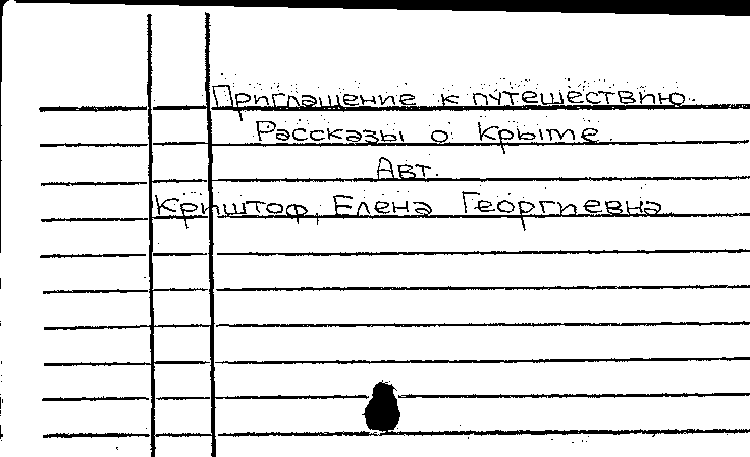 Приглашение к путешествию.
Рассказы о Крыме.
Авт.
Криштоф, Елена Георгиевна